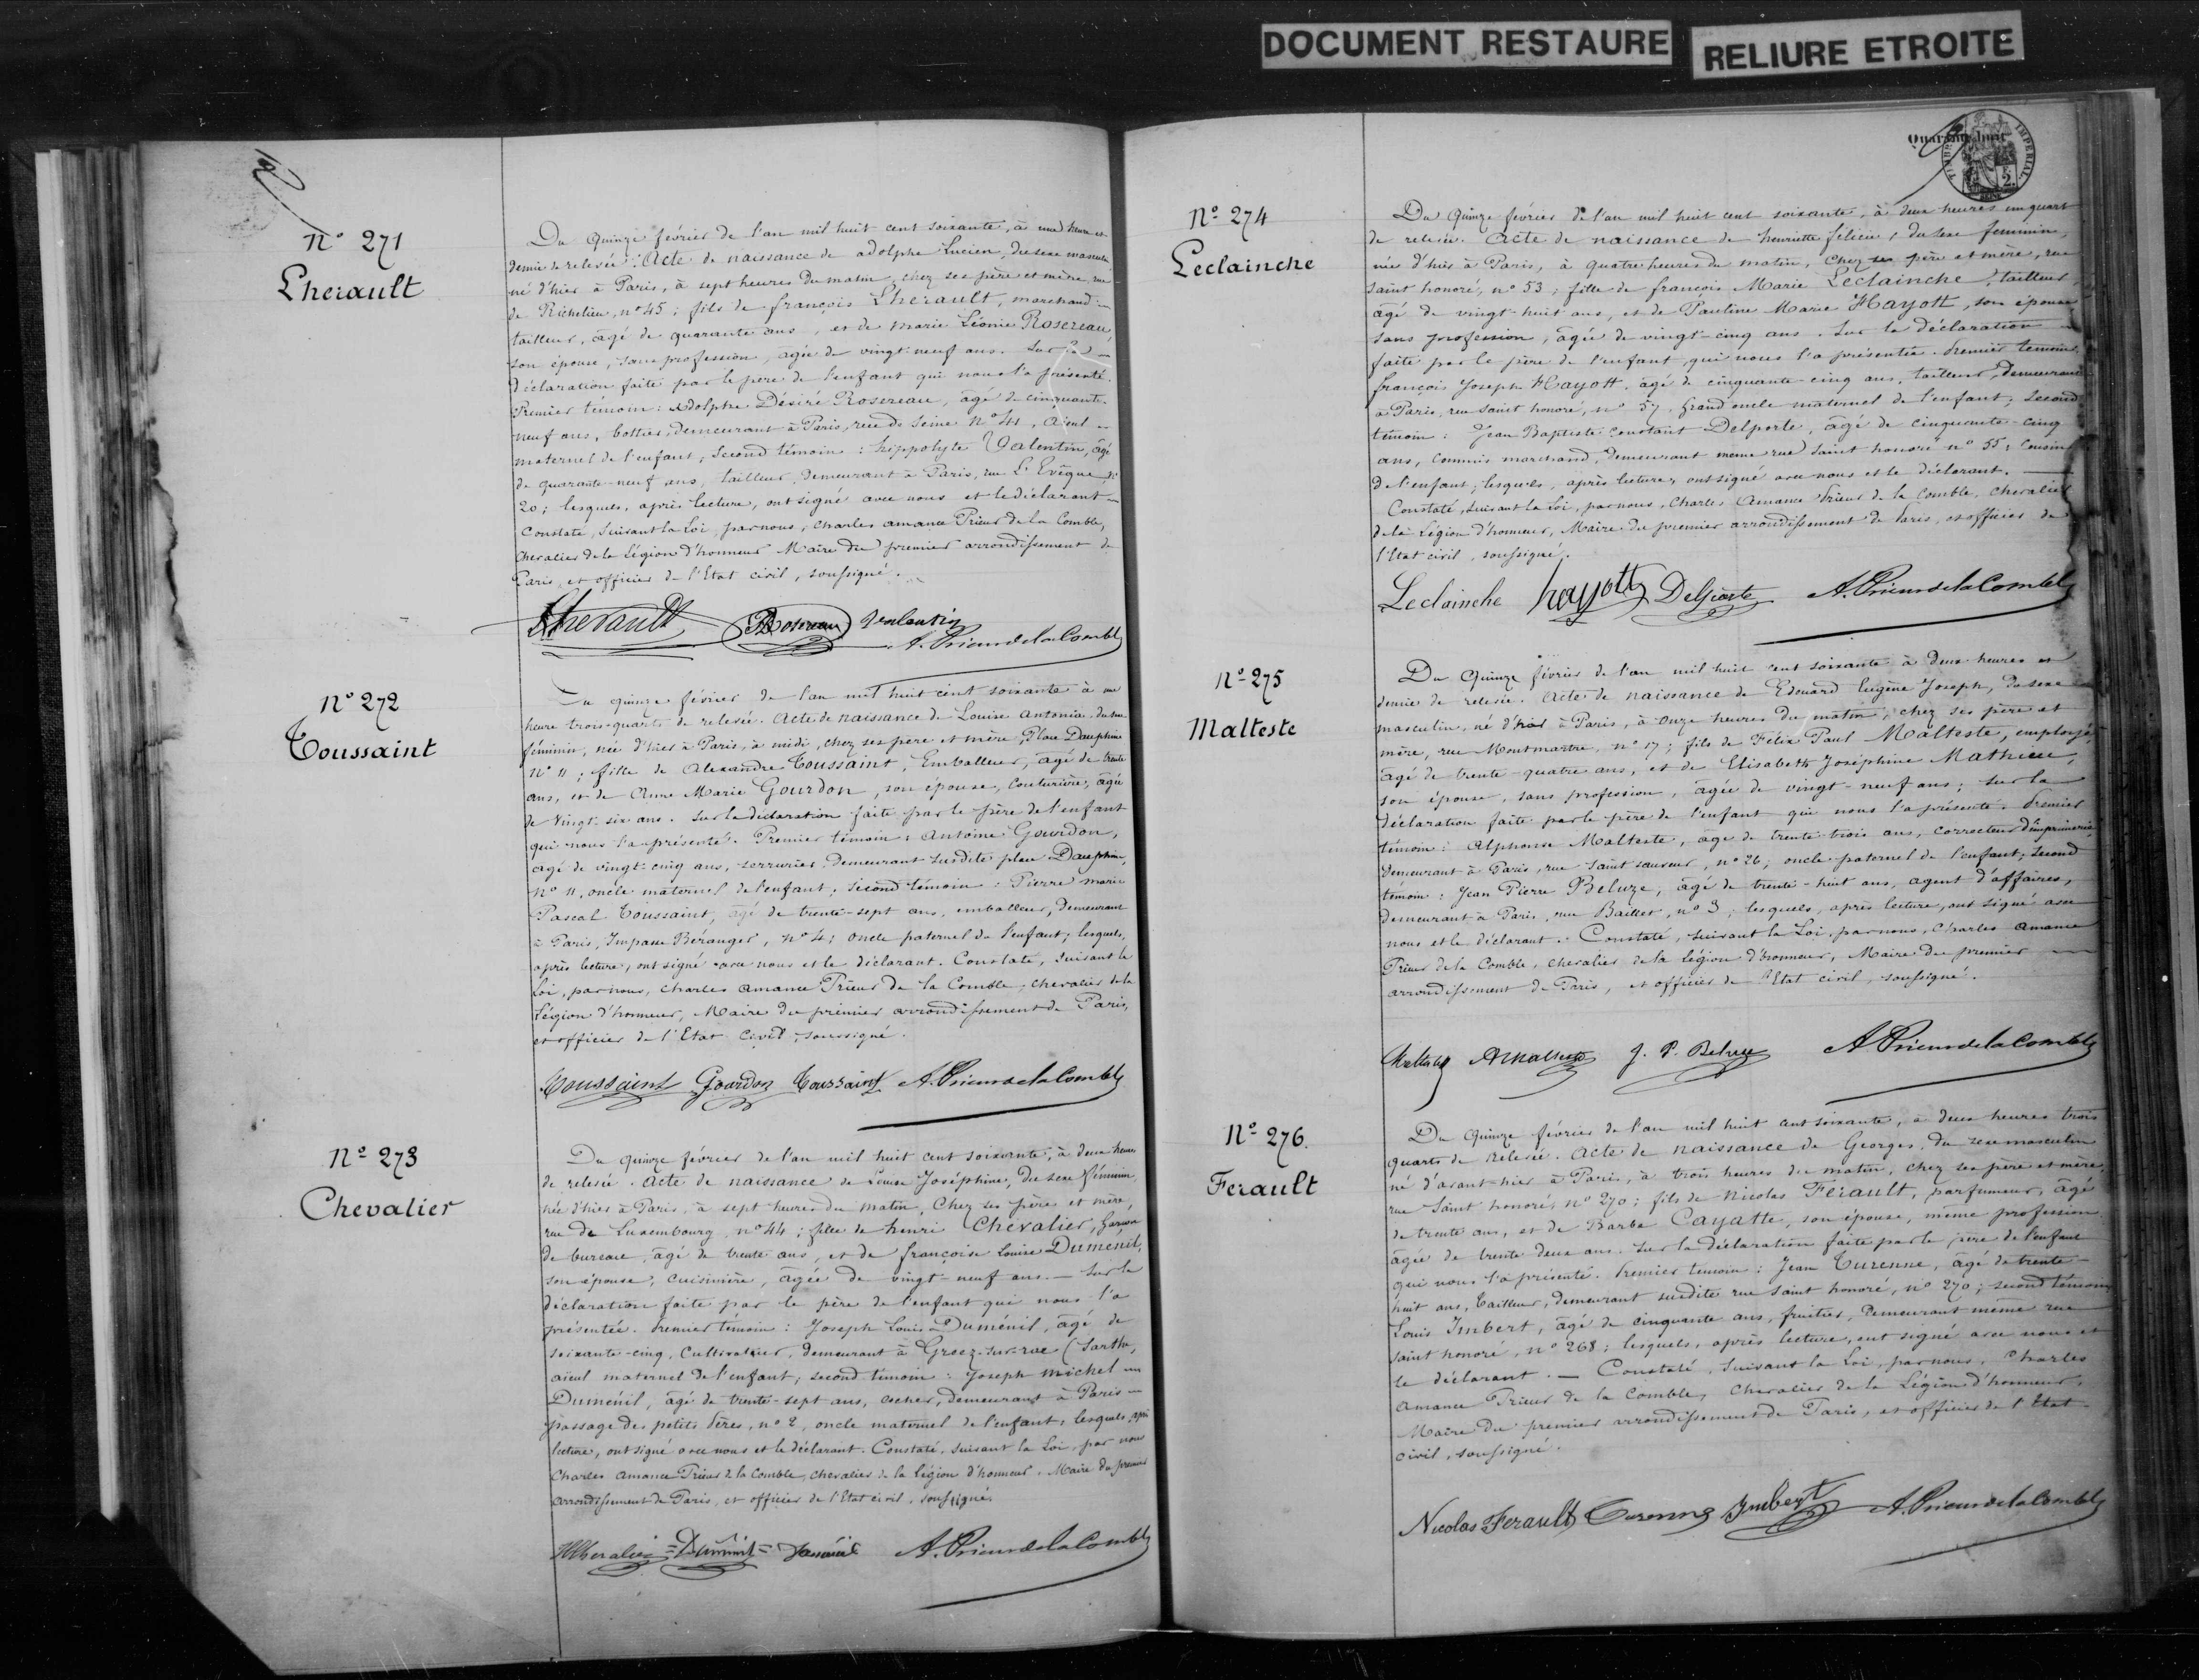 DOCUMENT RESTAURE
RELIURE ETROITE
N° 271
Lherault
Du Quinze février de l'an mil huit cent soixante, à une heure et
demie de relevée. Acte de naissance de adolphe Lucien, du sexe masculin
né d'hier à Paris, à sept heures du matin, chez ses père et mère, rue
de Richelieu, n° 45; fils de françois Lherault, marchand
tailleur, âgé de quarante ans, et de Marie Léonie Rosereau,
son épouse, sans profession, âgée de vingt-neuf ans. Sur la
déclaration faite par le père de l'enfant qui nous l'a présenté.
Premier témoin: Adolphe Désiré Rosereau, âgé de cinquante-
neuf ans, bottier, demeurant à Paris, rue de Seine n° 41, aïeul
maternel de l'enfant; second témoin: hippolyte Valentin, âgé
de quarante-neuf ans, tailleur, demeurant à Paris, rue L'Evêque n°
20; lesquels, après lecture, ont signé avec nous et le déclarant
Constaté, suivant la Loi, par nous, Charles amance Prieur de la Comble,
Chevalier de la Légion d'honneur Maire du premier arrondissement de
Paris, et officier de l'Etat civil, soussigné.
Lherault Rosereau Valentin
A. Prieur de la Comble
N° 272
Toussaint
Du quinze février de l'an mil huit cent soixante à une
heure trois quarts de relevée. Acte de naissance de Louise Antonia du sexe
féminin, née d'hier à Paris, à midi, chez ses père et mère, Place Dauphine
N° 11; fille de Alexandre Toussaint, Emballeur, âgé de trente
ans, et de Anne Marie Gourdon, son épouse, Couturière, âgée
de vingt-six ans. Sur la déclaration faite par le père de l'enfant
qui nous l'a présenté. Premier témoin: Antoine Gourdon,
âgé de vingt-cinq ans, serrurier, demeurant susdite place Dauphine,
N° 11, oncle maternel de l'enfant; second témoin: Pierre marie
Pascal Toussaint, âgé de trente-sept ans, emballeur, demeurant
à Paris, Impasse Béranger, n° 4; oncle paternel de l'enfant; lesquels,
après lecture, ont signé avec nous et le déclarant. Constaté, suivant la
Loi, par nous, Charles amance Prieur de la Comble, chevalier de la
Légion d'honneur, Maire du premier arrondissement de Paris,
et officier de l'Etat Civil, soussigné.
Toussaint Gourdon Toussaint A. Prieur de la Comble
N° 273
Chevalier
Du quinze février de l'an mil huit cent soixante, à deux heures
de relevée. Acte de naissance de Louise Joséphine, du sexe féminin,
née d'hier à Paris, à sept heures du matin, chez ses père et mère,
rue de Luxembourg, n° 44; fille de henri Chevalier, Garçon
de bureau, âgé de trente ans, et de françoise Louise Duménil,
son épouse, cuisinière, âgée de vingt-neuf ans. — Sur la
déclaration faite par le père de l'enfant qui nous l'a
présentée. Premier témoin: Joseph Louis Duménil, âgé de
soixante-cinq, Cultivateur, demeurant à Gréez-sur-roc (Sarthe,
aïeul maternel de l'enfant; second témoin: Joseph Michel
Duménil, âgé de trente-sept ans, cocher, demeurant à Paris
passage des petits Pères, n° 2, oncle maternel de l'enfant; lesquels, après
lecture, ont signé avec nous et le déclarant. Constaté, suivant la Loi, par nous
Charles amance Prieur de la Comble, chevalier de la légion d'honneur, Maire du premier
arrondissement de Paris, et officier de l'Etat civil, soussigné.
HChevalier Duménil Duménil A. Prieur de la Comble
Quarante huit
TIMBRE IMPERIAL
N° 274
Leclainche
Du Quinze février de l'an mil huit cent soixante, à deux heures un quart
de relevée. Acte de naissance de henriette félicie, du sexe féminin,
née d'hier à Paris, à quatre heures du matin, chez ses père et mère, rue
saint honoré, n° 53; fille de françois Marie Leclainche, tailleur
âgé de vingt-huit ans, et de Pauline Marie Hayott, son épouse
sans profession, âgée de vingt-cinq ans. Sur la déclaration
faite par le père de l'enfant, qui nous l'a présentée. Premier témoin
françois Joseph Hayott, âgé de cinquante-cinq ans, tailleur, demeurant
à Paris, rue saint honoré, n° 57, Grand oncle maternel de l'enfant; second
témoin: Jean Baptiste Constant Delporte, âgé de cinquante-cinq
ans, commis marchand, demeurant même rue saint honoré n° 55, Cousin
de l'enfant; lesquels, après lecture, ont signé avec nous et le déclarant.
Constaté, suivant la Loi, par nous, Charles Amance Prieur de la Comble, chevalier
de la Légion d'honneur, Maire du premier arrondissement de Paris, et officier de
l'Etat civil, soussigné.
Leclainche hayott Delporte A. Prieur de la Comble
N° 275
Malteste
Du Quinze février de l'an mil huit cent soixante à deux heures et
demie de relevée. Acte de naissance de Edouard Eugène Joseph, du sexe
masculin, né d'hier à Paris, à onze heures du matin, chez ses père et
mère, rue Montmartre, n° 17; fils de Félix Paul Malteste, employé,
âgé de trente-quatre ans, et de Elisabeth Joséphine Mathieu,
son épouse, sans profession, âgée de vingt-neuf ans; sur la
déclaration faite par le père de l'enfant qui nous l'a présenté. Premier
témoin: Alphonse Malteste, âgé de trente-trois ans, correcteur d'imprimerie
demeurant à Paris, rue saint sauveur, n° 26; oncle paternel de l'enfant; second
témoin: Jean Pierre Beluze, âgé de trente-huit ans, agent d'affaires,
demeurant à Paris, rue Baillet, n° 3; lesquels, après lecture, ont signé avec
nous et le déclarant. Constaté, suivant la Loi, par nous, Charles amance
Prieur de la Comble, chevalier de la légion d'honneur, Maire du premier
arrondissement de Paris, et officier de l'Etat civil, soussigné.
Malteste AMalteste J. P. Beluze A. Prieur de la Comble
N° 276.
Ferault
Du Quinze février de l'an mil huit cent soixante, à deux heures trois
quarts de Relevée. Acte de naissance de Georges, du sexe masculin
né d'avant-hier à Paris, à trois heures du matin, chez ses père et mère,
rue Saint honoré, n° 270; fils de Nicolas Férault, parfumeur, âgé
de trente ans, et de Barbe Cayatte, son épouse, même profession
âgée de trente deux ans. Sur la déclaration faite par le père de l'enfant
qui nous l'a présenté. Premier témoin: Jean Turenne, âgé de trente-
huit ans, tailleur, demeurant susdite rue saint honoré, n° 270; second témoin
Louis Imbert, âgé de cinquante ans, fruitier, demeurant même rue
saint honoré, n° 268; lesquels, après lecture, ont signé avec nous et
le déclarant. — Constaté, suivant la Loi, par nous, Charles
amance Prieur de la Comble, Chevalier de la Légion d'honneur,
Maire du premier arrondissement de Paris, et officier de l'Etat-
civil, soussigné.
Nicolas Ferault Turenne Imbert A. Prieur de la Comble